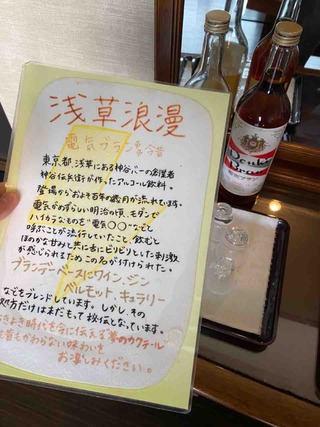 浅草浪漫
電気ブラン今昔
東京都、浅草にある神谷バーの創業者
神谷伝兵衛が作ったアルコール飲料。
登場からおよそ百年の歳月が流れています。
電気がめずらしい明治の頃、モダンで
ハイカラなものを"電気○○"などと
呼ぶことが流行していたこと、飲むと
ほのかな甘みと共に舌にピリピリとした刺激
が感じられるためこの名が付けられた。
ブランデーベースにワイン、ジン
ベルモット、キュラソー
などをブレンドしています。しかし、その
処方だけは未だもって秘伝となっています。
古きよき時代を今に伝える夢のカクテル
昔もかわらない味わいを
お楽しみください。
Denki
Bran
電気ブラン